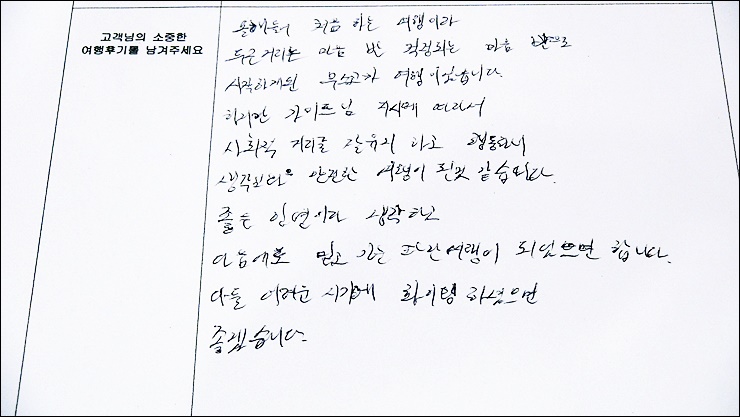 고객님의 소중한
여행후기를 남겨주세요
올해들어 처음 하는 여행이라
두근거리는 마음 반 걱정되는 마음 반으로
시작하게된 무소고가 여행이었습니다.
하지만 가이드님 지시에 따라서
사회적 거리를 잘유지 하고 행동하니
생각보다 안전한 여행이 된것 같습니다.
좋은 일면이라 생각하고
다음에도 믿고 가는 파란여행이 되었으면 합니다.
다들 어려운 시기에 화이팅 하셨으면
좋겠습니다.